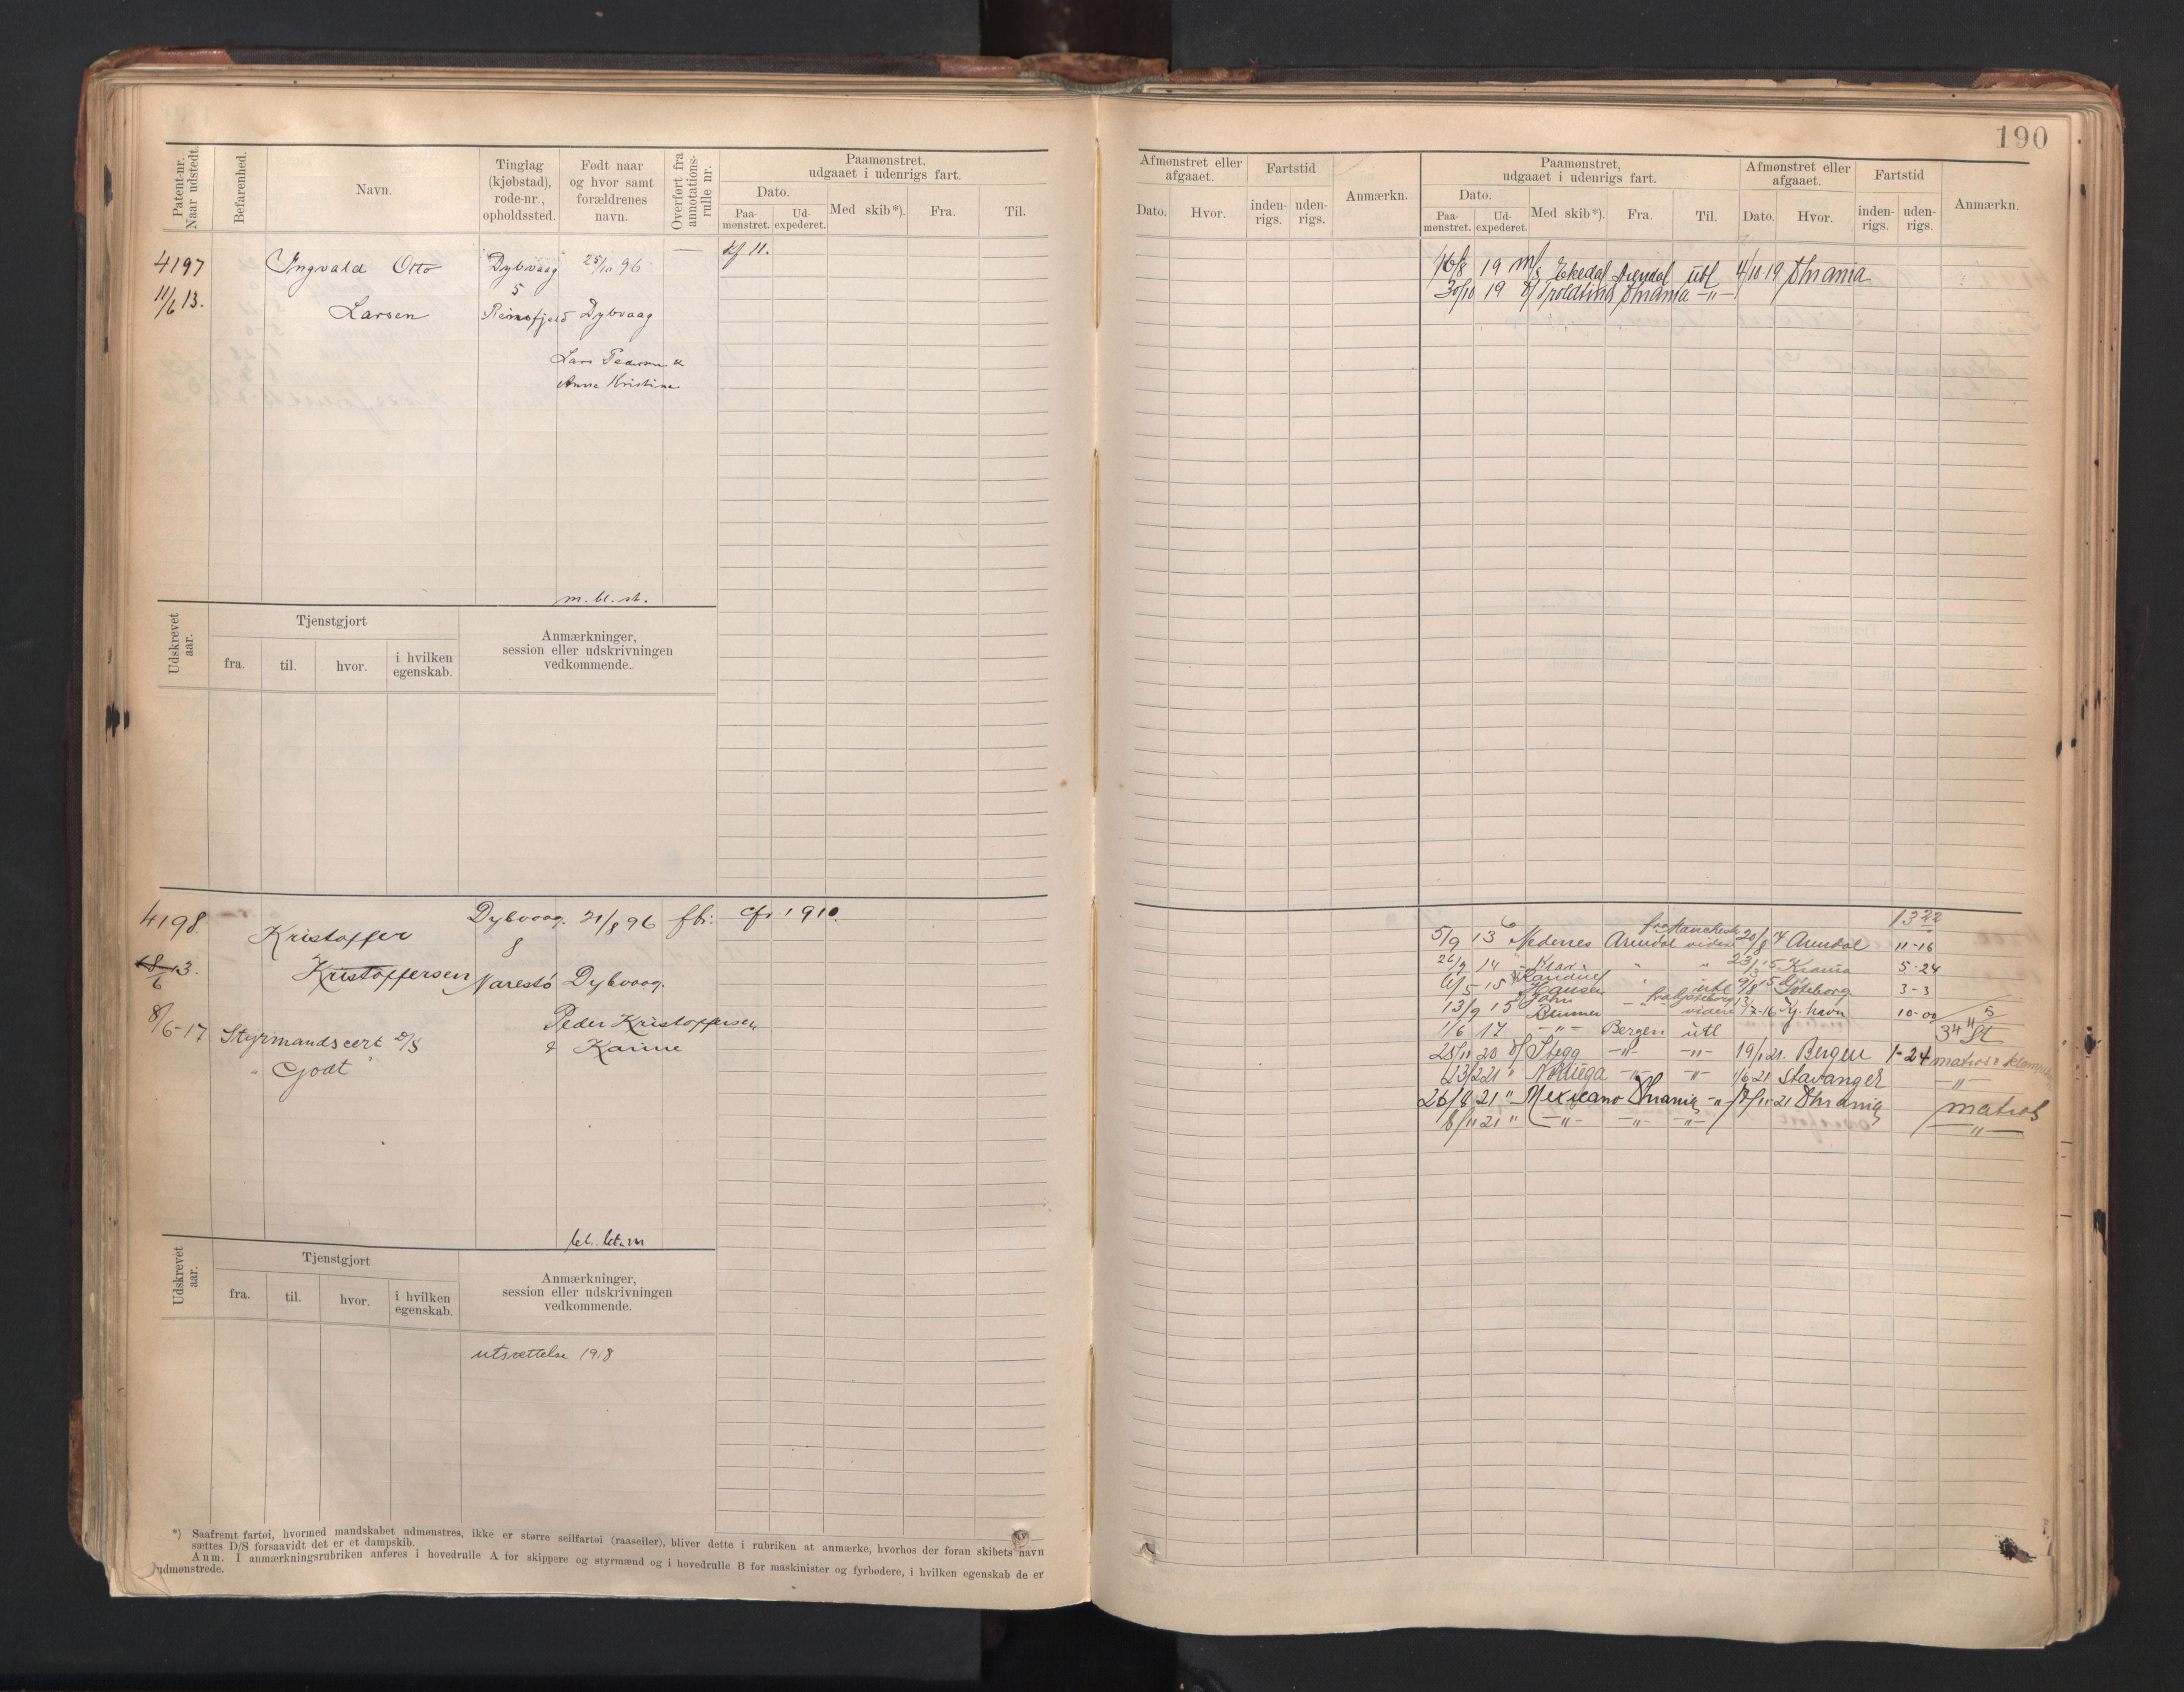 190
Patent-nr. Naar udstedt.
Befarenhed.
Navn.
Tinglag (kjøbstad), rode-nr., opholdssted.
Født naar og hvor samt forældrenes navn.
Overført fra annotations-rulle nr.
Paamønstret, udgaaet i udenrigs fart.
Dato.
Paa-mønstret.
Ud-expederet.
Med skib*).
Fra.
Til.
Afmønstret eller afgaaet.
Dato.
Hvor.
Fartstid
inden-rigs.
uden-rigs.
Anmærkn.
Paamønstret, udgaaet i udenrigs fart.
Dato.
Paa-mønstret.
Ud-expederet.
Med skib*).
Fra.
Til.
Afmønstret eller afgaaet.
Dato.
Hvor.
Fartstid
inden-rigs.
uden-rigs.
Anmærkn.
4197 Ingvald Otto Dybvaag 25/10 96 — 11.
11/6 13. 5
Larsen Dybvaag
Lars Pedersen &
Anne Kristine
16/8 19 M/S Ekedal Arendal utl 4/10 19 Khania
30/10 19 Troldtind -"-
m. bl. st.
Udskrevet aar.
Tjenstgjort
fra. til. hvor. i hvilken egenskab.
Anmærkninger, session eller udskrivningen vedkommende.
4198 Dybvaag. 21/8 96 1910.
Kristoffer 8
18/6 13. Kristoffersen Narestö Dybvaag.
8/6-17 Peder Kristoffersen
Styrmandscert D/S & Karine
" Godt "
1322
fra Manchester
5/9 13 Nedenes Arendal videre 20/8 14 Arendal 11-16
26/9 14 " " 23/3 15 5-24
6/5 15 Hansen " utl 9/8 15 Göteborg 3-3
13/9 15 John Brunner fra Göteborg videre Kj. havn 10-00
1/6 17 -"- Bergen utl
25/11 20 Stegg -"- -"- 19/1 21. Bergen 1-24 matros
23/2 21 " Noruega -"- -"- 1/6 21 Stavanger -"-
26/8 21 " Mexicano -"- 21 matros
8/11 21 " -"- -"- -"- -"-
Udskrevet aar.
Tjenstgjort
fra. til. hvor. i hvilken egenskab.
Anmærkninger, session eller udskrivningen vedkommende.
utsættelse 1918
*) Saafremt fartøi, hvormed mandskabet udmønstres, ikke er større seilfartøi (raaseiler), bliver dette i rubriken at anmærke, hvorhos der foran skibets navn
sættes D/S forsaavidt det er et dampskib.
Anm. I anmærkningsrubriken anføres i hovedrulle A for skippere og styrmænd og i hovedrulle B for maskinister og fyrbødere, i hvilken egenskab de er
udmønstrede.